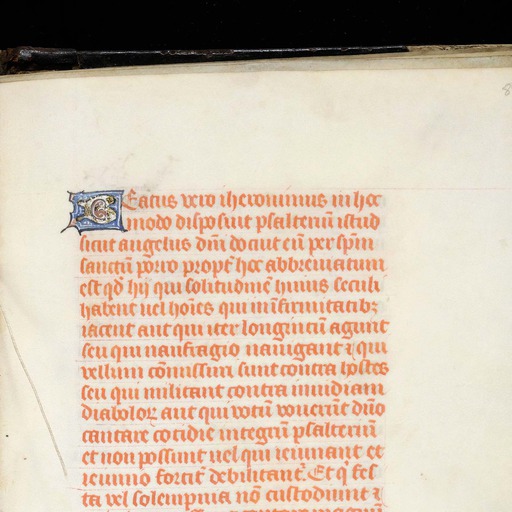 Beatus vero iheronimus in hoc
modo disposuit psalteriū istud
sicut angelus dn̄i docuit eū per sp̄m
sanctū porro propt' hoc abbreuiatum
est qd̄ hij qui solitudinē huius seculi
habent uel hoīes qui in īfirmitatibꝫ
iacent aut qui iter longincū agunt
seu qui naufragio nauigant ⁊ qui
vellum cōmissuri sunt contra hostes
seu qui militant contra inuidiam
diaboloꝝ aut qui votū vouerūt dn̄o
cantare cotidie integrū psalteriū
et non possunt uel qui ieiunant et
ieiunio fortit' debilitant'. Et q̄ fes
ta vel solempnia nō custodiunt ⁊